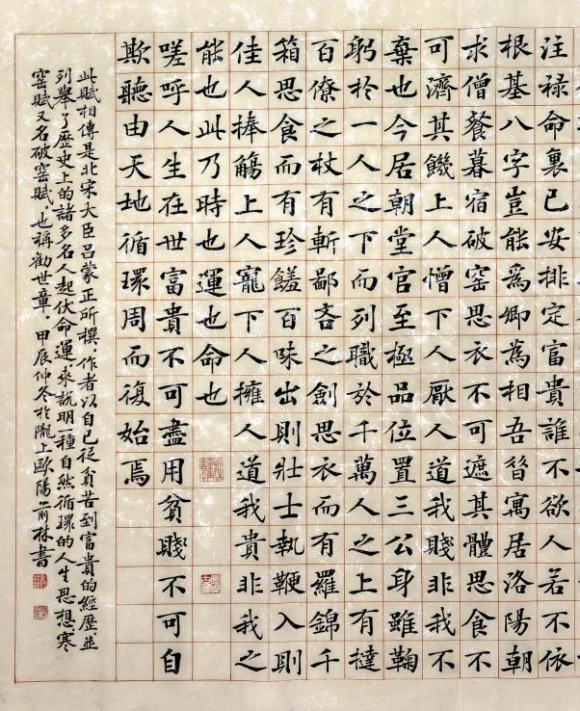 注禄命裏已安排定富貴誰不欲人若不依
根基八字豈能爲卿為相吾昔寓居洛陽朝
求僧餐暮宿破窑思衣不可遮其體思食不
可濟其饑上人憎下人厭人道我賤非我不
棄也今居朝堂官至極品位置三公身雖鞠
躬於一人之下而列職於千萬人之上有撻
百僚之杖有斬鄙吝之劍思衣而有羅錦千
箱思食而有珍饈百味出則壯士執鞭入則
佳人捧觴上人寵下人擁人道我貴非我之
能也此乃時也運也命也
嗟呼人生在世富貴不可盡用貧賤不可自
欺聽由天地循環周而復始焉
此賦相傳是北宋大臣吕蒙正所撰作者以自已從貧苦到富貴的經歷並
列舉了歷史上的諸多名人起伏命運来説明一種自然循環的人生思想寒
窑賦又名破窑賦.也稱勸世章.甲辰仲冬於隴上歐陽林書